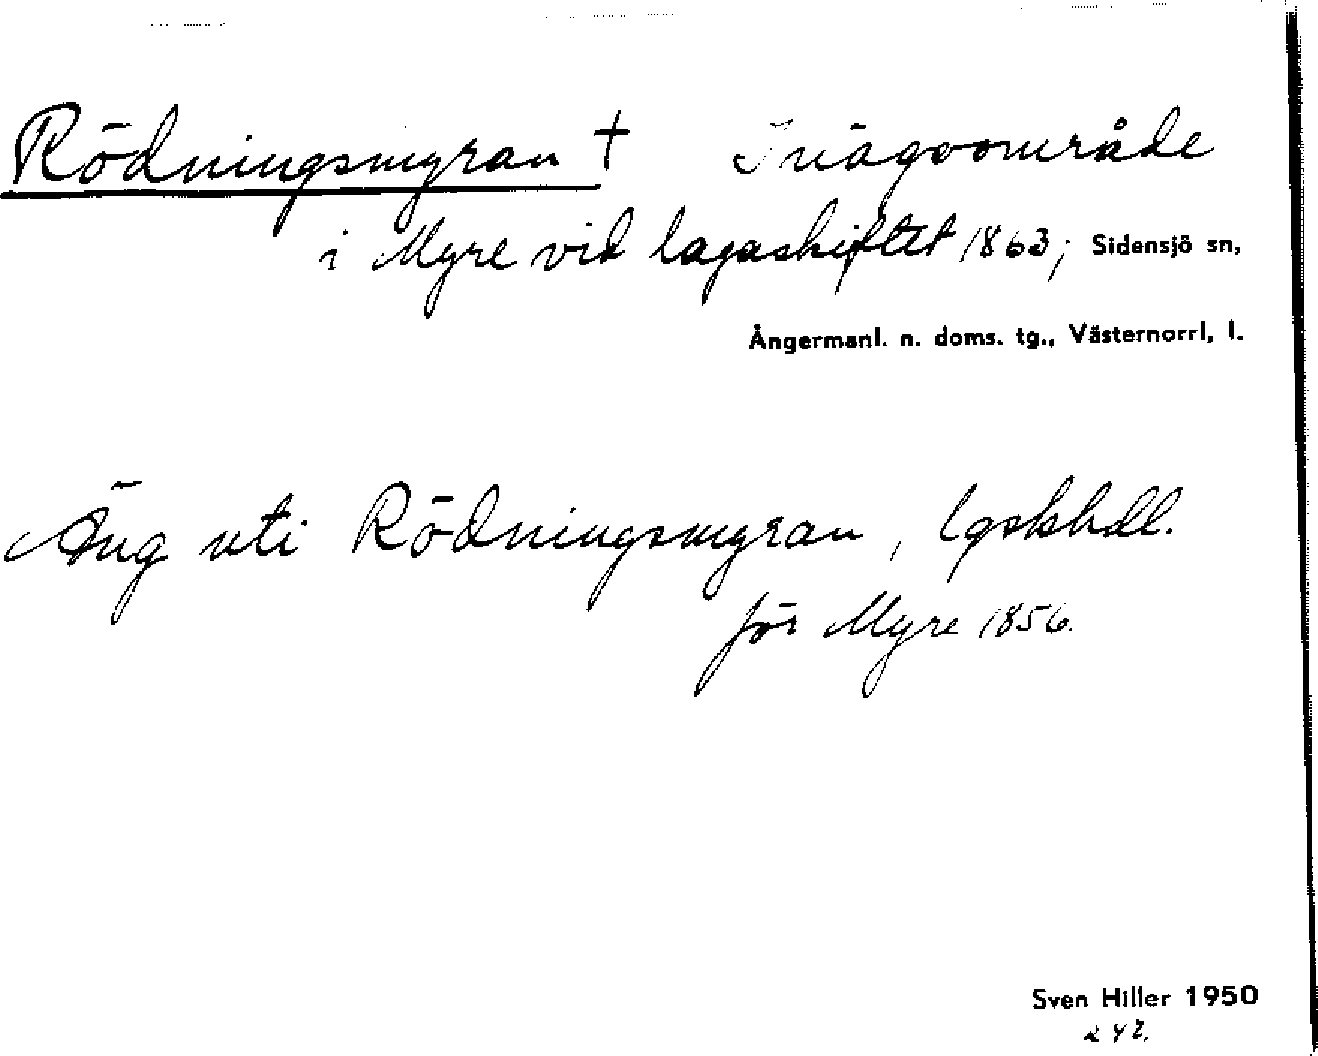 Rödningsmyran † Inägoområde
i Myre vid lagaskiftet 1863; Sidensjö sn,
Ångermanl. n. doms. tg., Västernorrl, l.
Äng uti Rödningsmyran, Lgskhdl.
för Myre 1856.
Sven Hiller 1950
242.